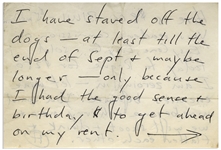 I have staved off the
dogs — at least till the
end of Sept & maybe
longer — only because
I had the good sense &
birthday $ to get ahead
on my rent. →